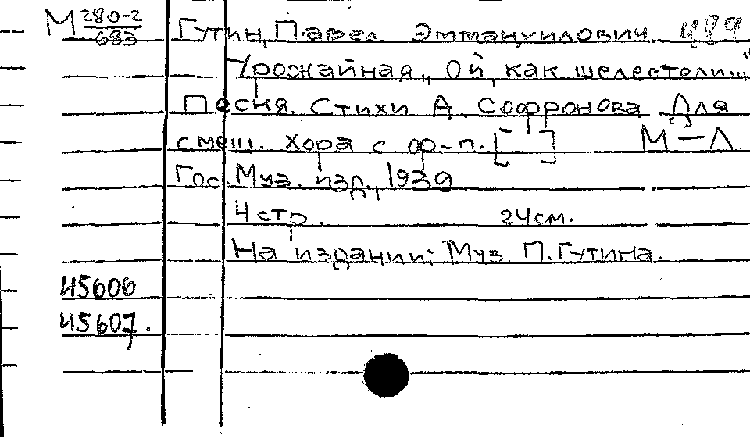 М 280-2/683 Гутин, Павел Эммануилович 489
Урожайная „Ой, как шелестели...“
Песня. Стихи А. Софронова. Для
смеш. хора с ф-п. [ ] М-Л
Гос. Муз. изд., 1939
4 стр. 24 см.
На издании: Муз. П. Гутина.
45606
45607.